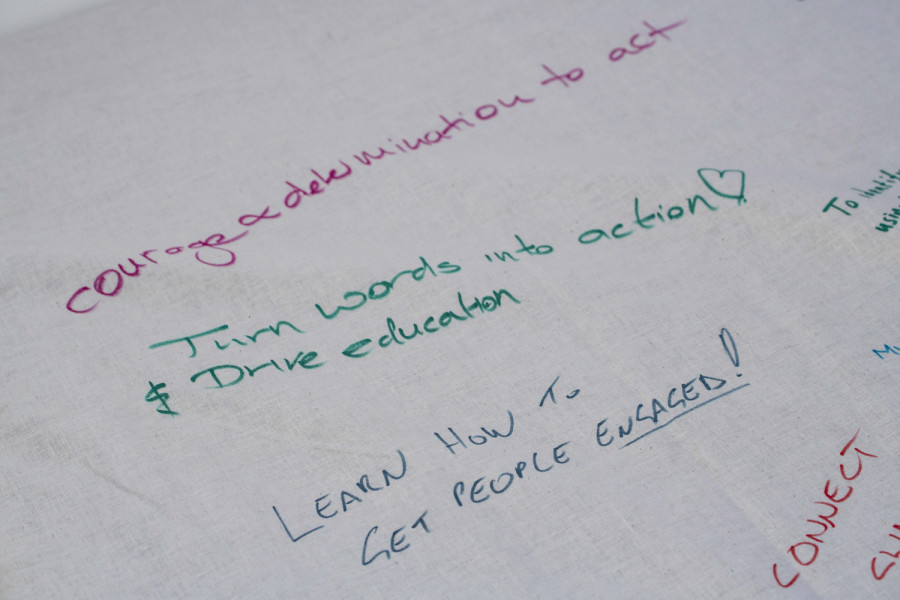 courage & determination to act
Turn words into action
& Drive education
LEARN HOW TO
GET PEOPLE ENGAGED!
To
CONNECT